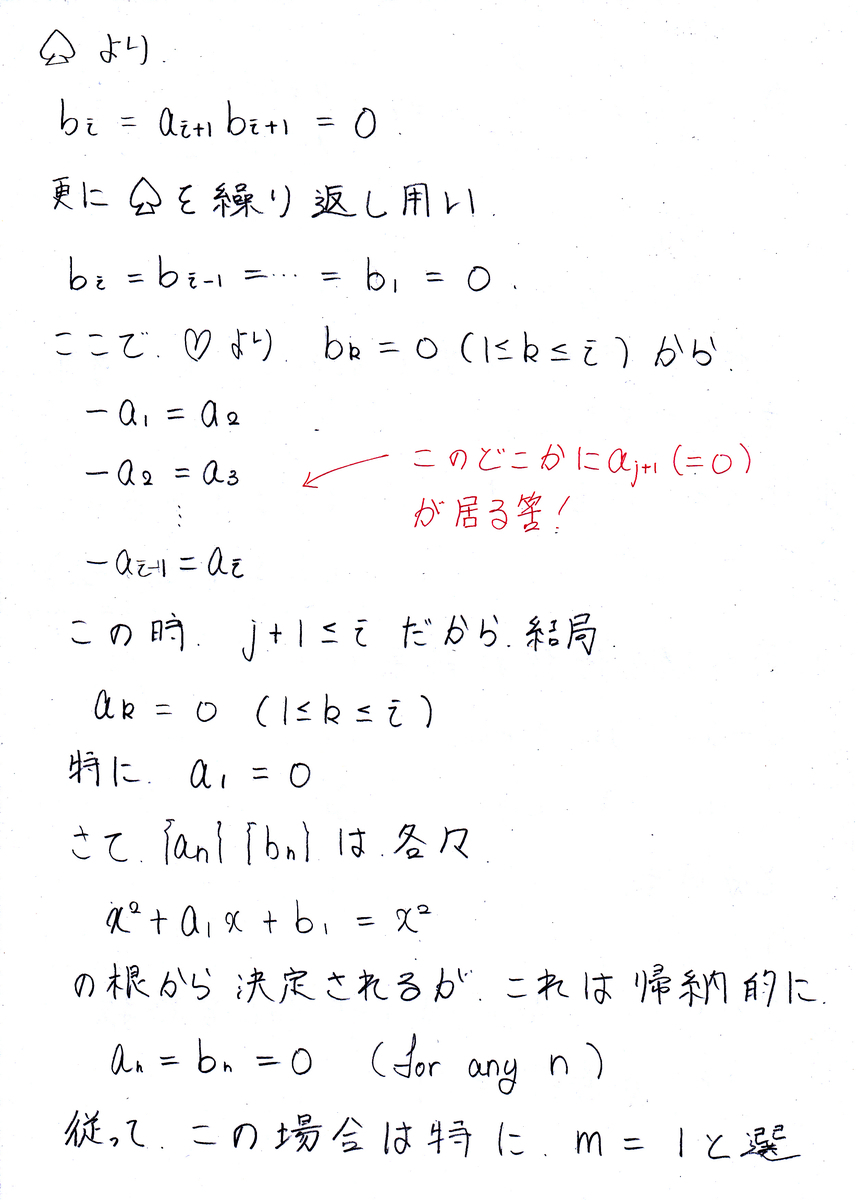 ♤ より.
b_i = a_{i+1} b_{i+1} = 0.
更に ♤を繰り返し用い.
b_i = b_{i-1} = … = b_1 = 0.
ここで. ♡より. b_k = 0 (1≤k≤i) から.
-a_1 = a_2
-a_2 = a_3
⋮
-a_{i-1} = a_i
このどこかに a_{j+1} (=0)
が居る筈!
この時. j+1 ≤ i だから. 結局.
a_k = 0 (1≤k≤i)
特に. a_1 = 0
さて. {a_n} {b_n} は. 各々.
x² + a_1 x + b_1 = x²
の根から決定されるが. これは帰納的に.
a_n = b_n = 0 (for any n)
従って. この場合は特に. m = 1 と選